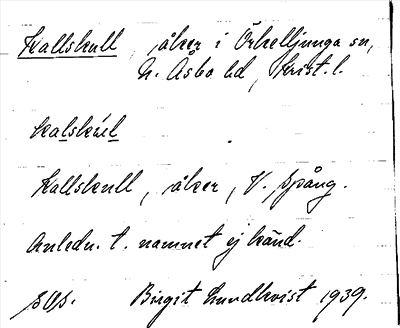 Kallskull, åker i Örkelljunga sn,
N. Åsbo hd, Krist. l.
Kallskull, åker, V. Spång.
Anledn. t. namnet ej känd.
Birgit Lundkvist 1939.